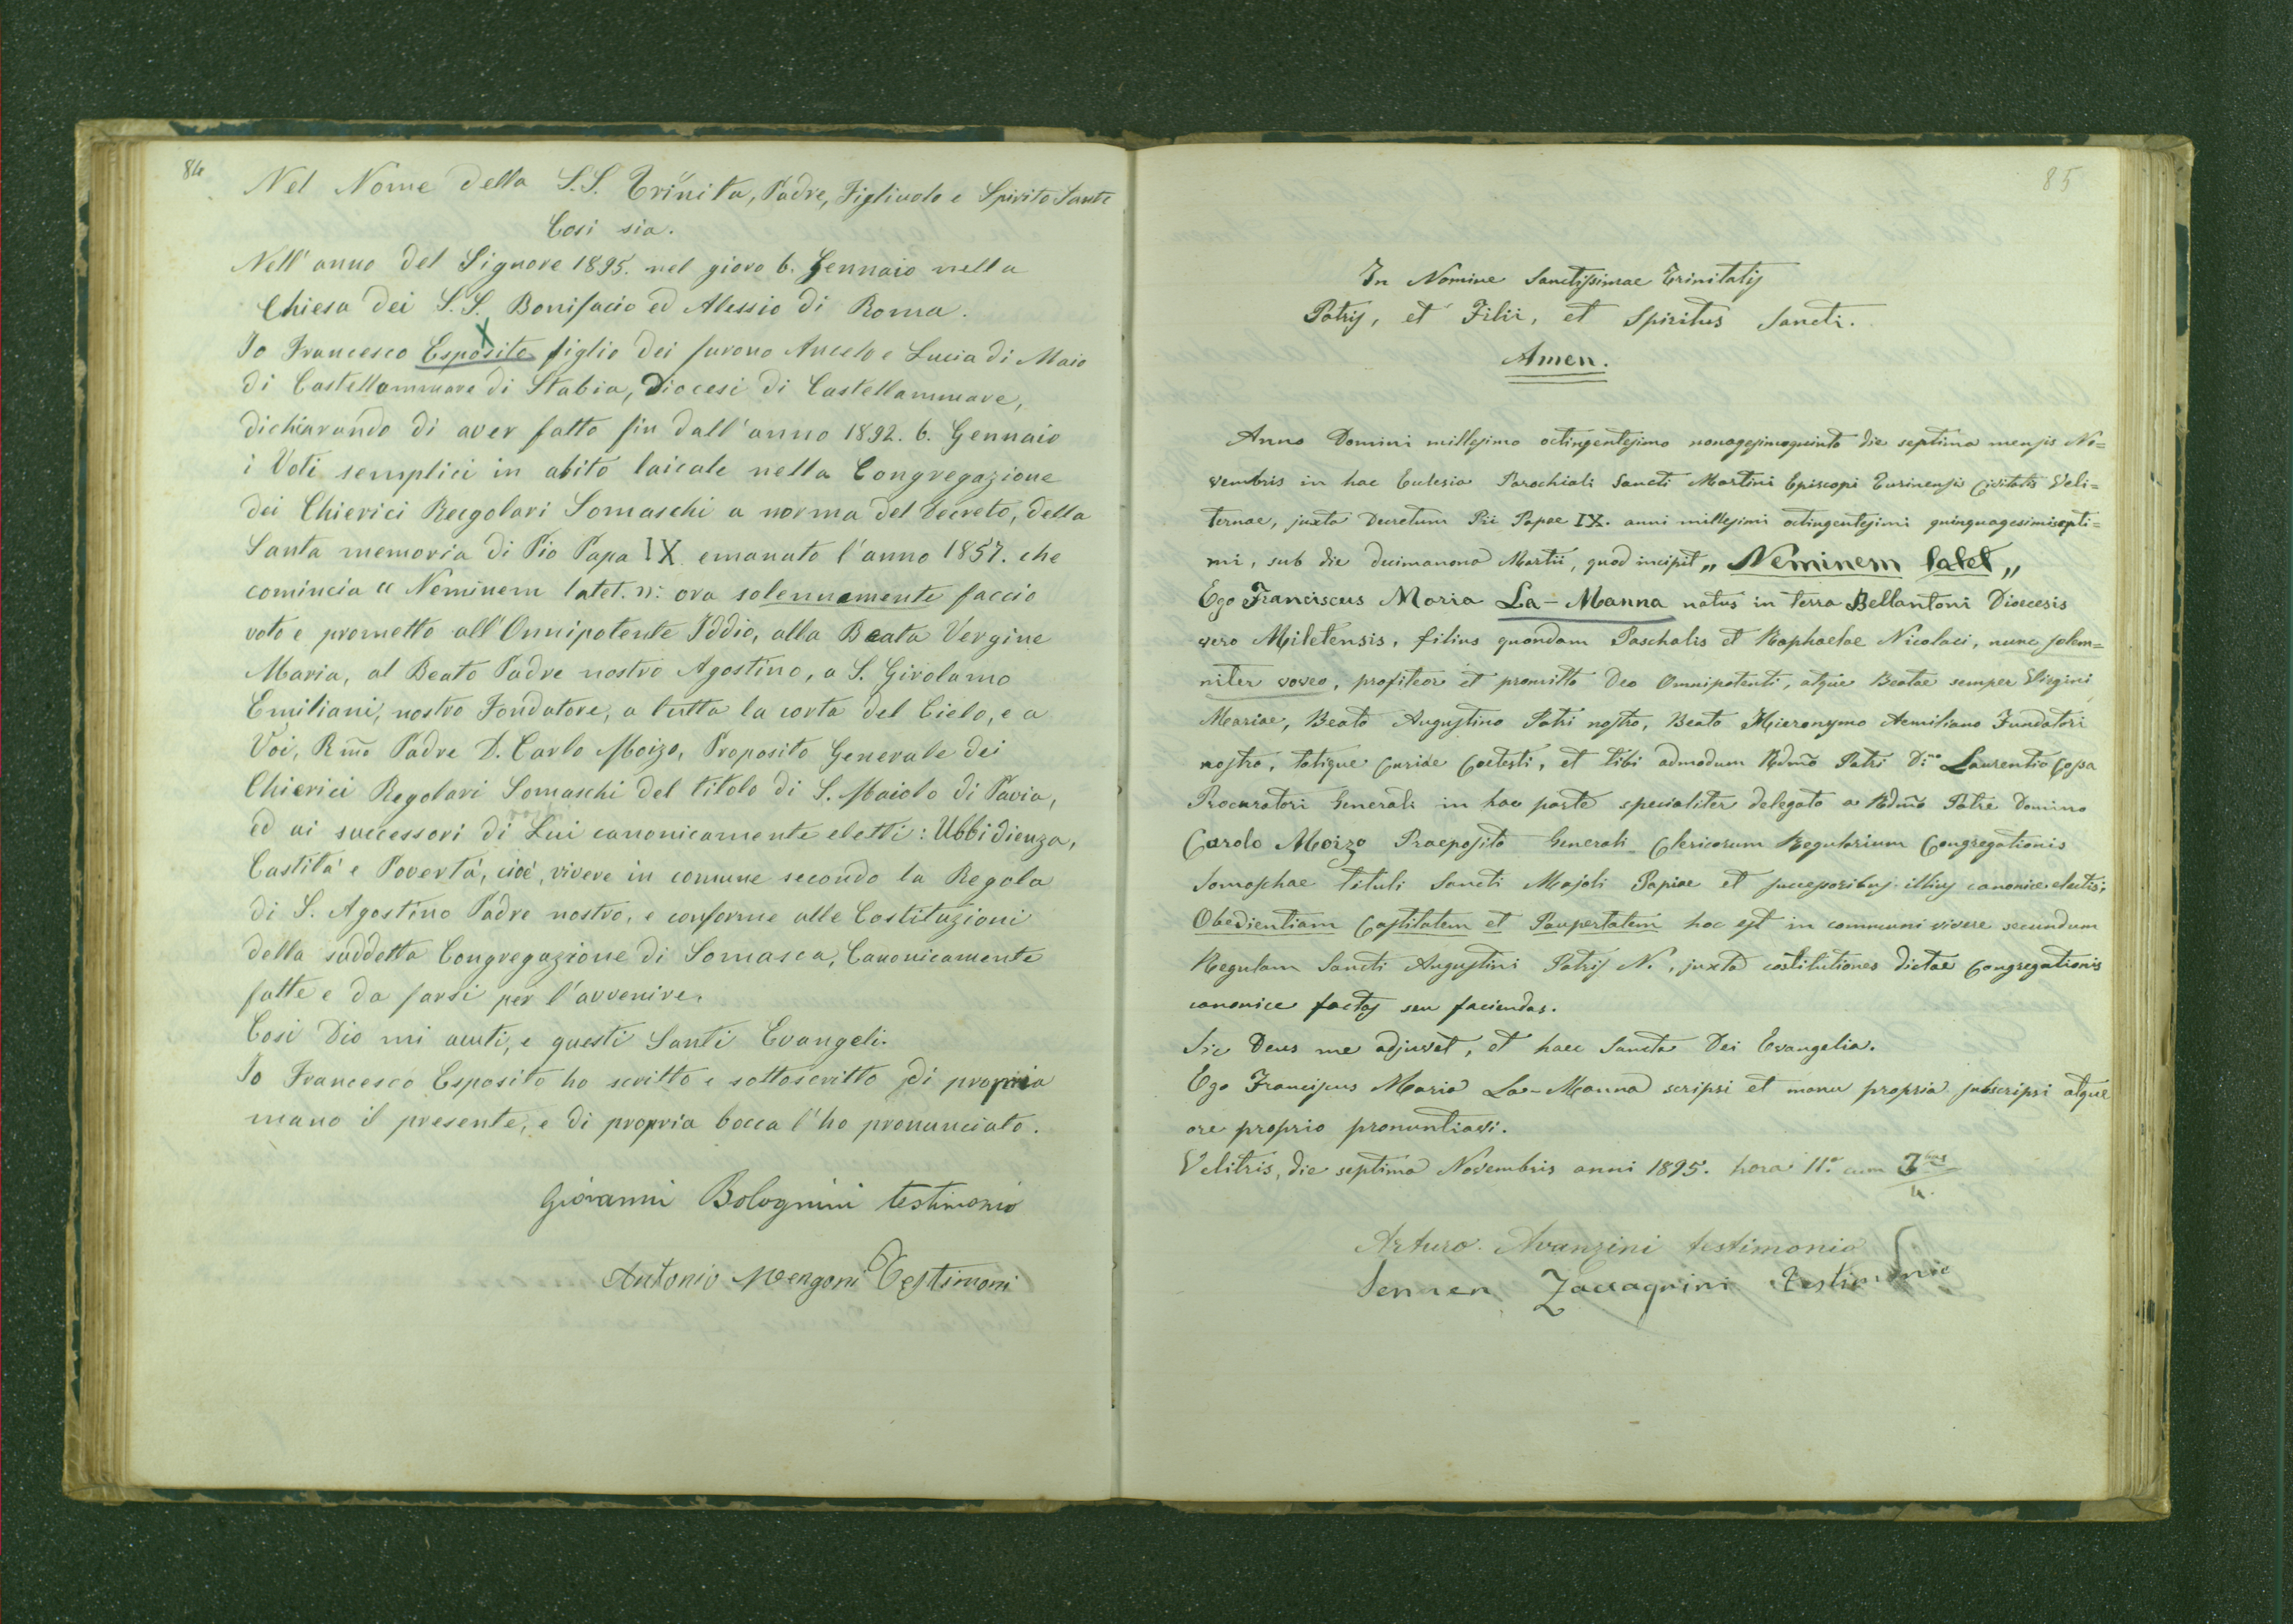 84
Nel Nome della S.S. Trinita, Padre, Figliuolo e Spirito Santo
Cosi sia.
Nell'anno del Signore 1895. nel giorno 6. Gennaio nella
Chiesa dei S.S. Bonifacio ed Alessio di Roma.
Io Francesco Esposito figlio dei furono Aucelo e Lucia di Maio
di Castellammare di Stabia, Diocesi di Castellammare,
dichiarando di aver fatto fin dall'anno 1892. 6. Gennaio
i Voti semplici in abito laicale nella Congregazione
dei Chierici Reegolari Somaschi a norma del Decreto, della
Santa memoria di Pio Papa IX emanato l'anno 1857. che
comincia " Neminem latet. n: ora solennemente faccio
voto e prometto all'Onnipotente Iddio, alla Beata Vergine
Maria, al Beato Padre nostro Agostino, a S. Girolamo
Emiliani, nostro Fondatore, a tutta la corta del Cielo, e a
Voi, Rm̃o Padre D. Carlo Moizo, Proposito Generale dei
Chierici Regolari Somaschi del titolo di S. Maiolo di Pavia,
ed ai successori di Lui canonicamente eletti: Ubbidienza,
Castità e Povertà, cioè, vivere in comune secondo la Regola
di S. Agostino Padre nostro, e conforme alle Costituzioni
della suddetta Congregazione di Somasca, Canonicamente
fatte e da farsi per l'avvenire.
Cosi Dio mi aiuti, e questi Santi Evangeli.
Io Francesco Esposito ho scritto e sottoscritto di propria
mano il presente, e di propria bocca l'ho pronunciato.
Giovanni Bolognini testimonio
Antonio Mengoni Testimoni
85
In Nomine Sanctissimae Trinitatis
Patris, et Filii, et Spiritus Sancti.
Amen.
Anno Domini millesimo octingentesimo nonagesimoquinto die septima mensis No=
vembris in hac Ecclesia Parochiali Sancti Martini Episcopi Turinensis Civitatis Veli=
ternae, juxta Decretum Pii Papae IX. anni millesimi octingentesimi quinquagesimisepti=
mi, sub die decimanona Martii, quod incipit „ Neminem latet „
Ego Franciscus Maria La-Manna natus in terra Bellantoni Dioecesis
vero Miletensis, filius quondam Paschalis et Raphaelae Nicolaci, nunc solem=
niter voveo, profiteor et promitto Deo Omnipotenti, atque Beatae semper Virgini
Mariae, Beato Augustino Patri nostro, Beato Hieronymo Aemiliano Fundatori
nostro, totique Curiae Coelesti, et tibi admodum Rdm̃o Patri D.no Laurentio Cossa
Procuratori Generali in hac parte specialiter delegato a Rdm̃o Patre Domino
Carolo Moizo Praeposito Generali Clericorum Regularium Congregationis
Somaschae tituli Sancti Majoli Papiae et successoribus illius canonice electis;
Obedientiam Castitatem et Paupertatem hoc est in communi vivere secundum
Regulam Sancti Augustini Patris N., juxta costitutiones dictae Congregationis
canonice factas seu faciendas.
Sic Deus me adjuvet, et haec Sancta Dei Evangelia.
Ego Franciscus Maria La-Manna scripsi et manu propria subscripsi atque
ore proprio pronuntiavi.
Velitris, die septima Novembris anni 1895. hora 11.a cum 3bus
4.
Arturo Avanzini testimonio
Sennen Zaccagnini Testimonio